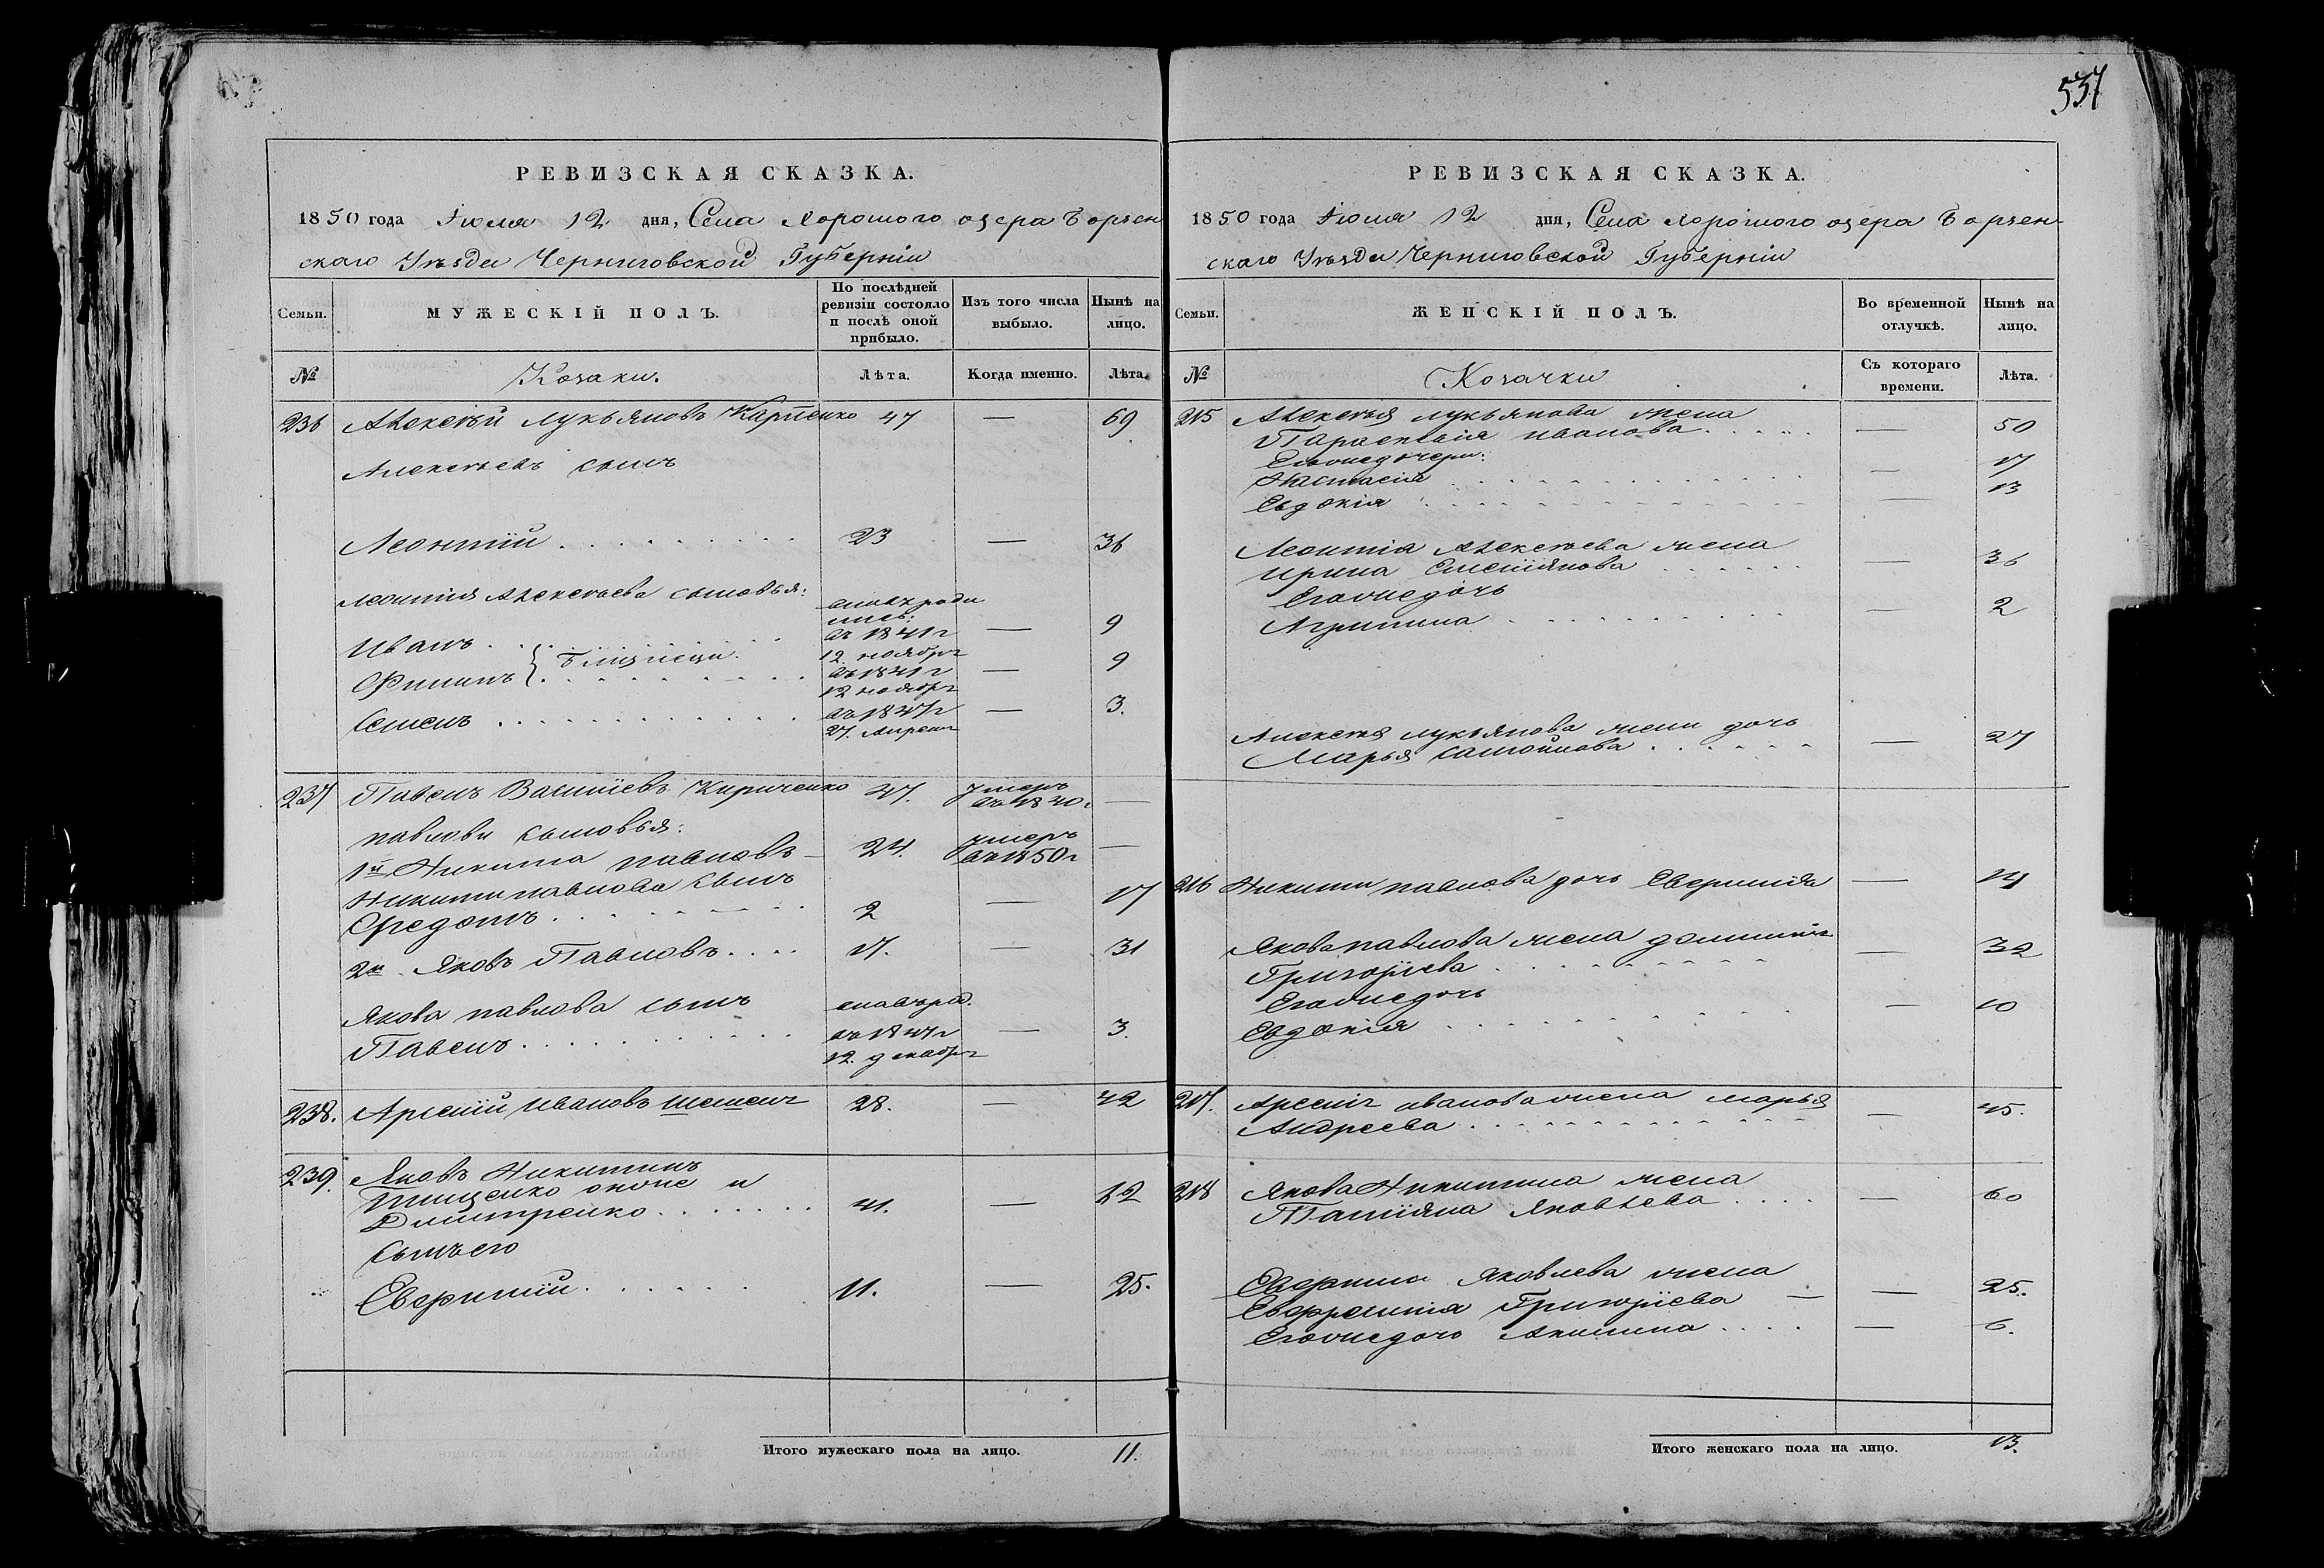 537
РЕВИЗСКАЯ СКАЗКА.
1850 года Іюля 12 дня, Села Хорошого озера Борзен-
скаго Уѣзда Черниговской Губерніи
Семьи.
МУЖЕСКІЙ ПОЛЪ.
По послѣдней
ревизіи состояло
и послѣ оной
прибыло.
Изъ того числа
выбыло.
Нынѣ на
лицо.
№
Козаки.
Лѣта.
Когда именно.
Лѣта.
236 Алексѣй Лукьяновъ Карпенко 47 — 69
Алексѣевъ сынъ
Леонтій 23 — 36
Леонтія Алексѣева сыновья:
Иванъ близнецы въ 1841г 12 ноябр — 9
Филипъ въ 1841г 12 ноябр — 9
Семенъ въ 1847г 27. Апреля — 3.
237 Павелъ Василіевъ Кириченко 47. умеръ въ 1840г —
Павловы сыновья:
1й Никита Павловъ 24. умеръ въ 1850г —
Никиты Павлова сынъ
Федотъ 2 — 17
2й Яковъ Павловъ 17. — 31
Якова Павлова сынъ
Павелъ въ 1847г 12. декабр — 3.
238. Арсеній Ивановъ 28. — 42
239. Яковъ Никитинъ
Тищенко онже и
Дмитренко 41. — 12
Сынъ его
11. — 25.
Итого мужескаго пола на лицо. 11.
РЕВИЗСКАЯ СКАЗКА.
1850 года Іюля 12 дня, Села Хорошого озера Борзен-
скаго Уѣзда Черниговской Губерніи
Семьи.
ЖЕНСКІЙ ПОЛЪ.
Во временной
отлучкѣ.
Нынѣ на
лицо.
№
Козачки
Съ котораго
времени.
Лѣта.
215 Алексѣя Лукьянова жена
Параскевія Иванова — 50
Егоже дочери:
Настасія — 17
Евдокія — 13
Леонтія Алексѣева жена
Ирина Емеліянова — 36
Егоже дочь
Агрипина — 2
Алексѣя Лукьянова жены дочь
Марья Самойлова — 27
216 Никиты Павлова дочь — 14
Якова Павлова жена
Григоріева — 32
Егоже дочь
Евдокія — 10
217. Арсенія Иванова жена Марья
Андреева — 45.
218 Якова Никитина жена
Татіяна Яковлева — 60
Яковлева жена
Григоріева — 25.
Егоже дочь Акилина — 6.
Итого женскаго пола на лицо. 13.